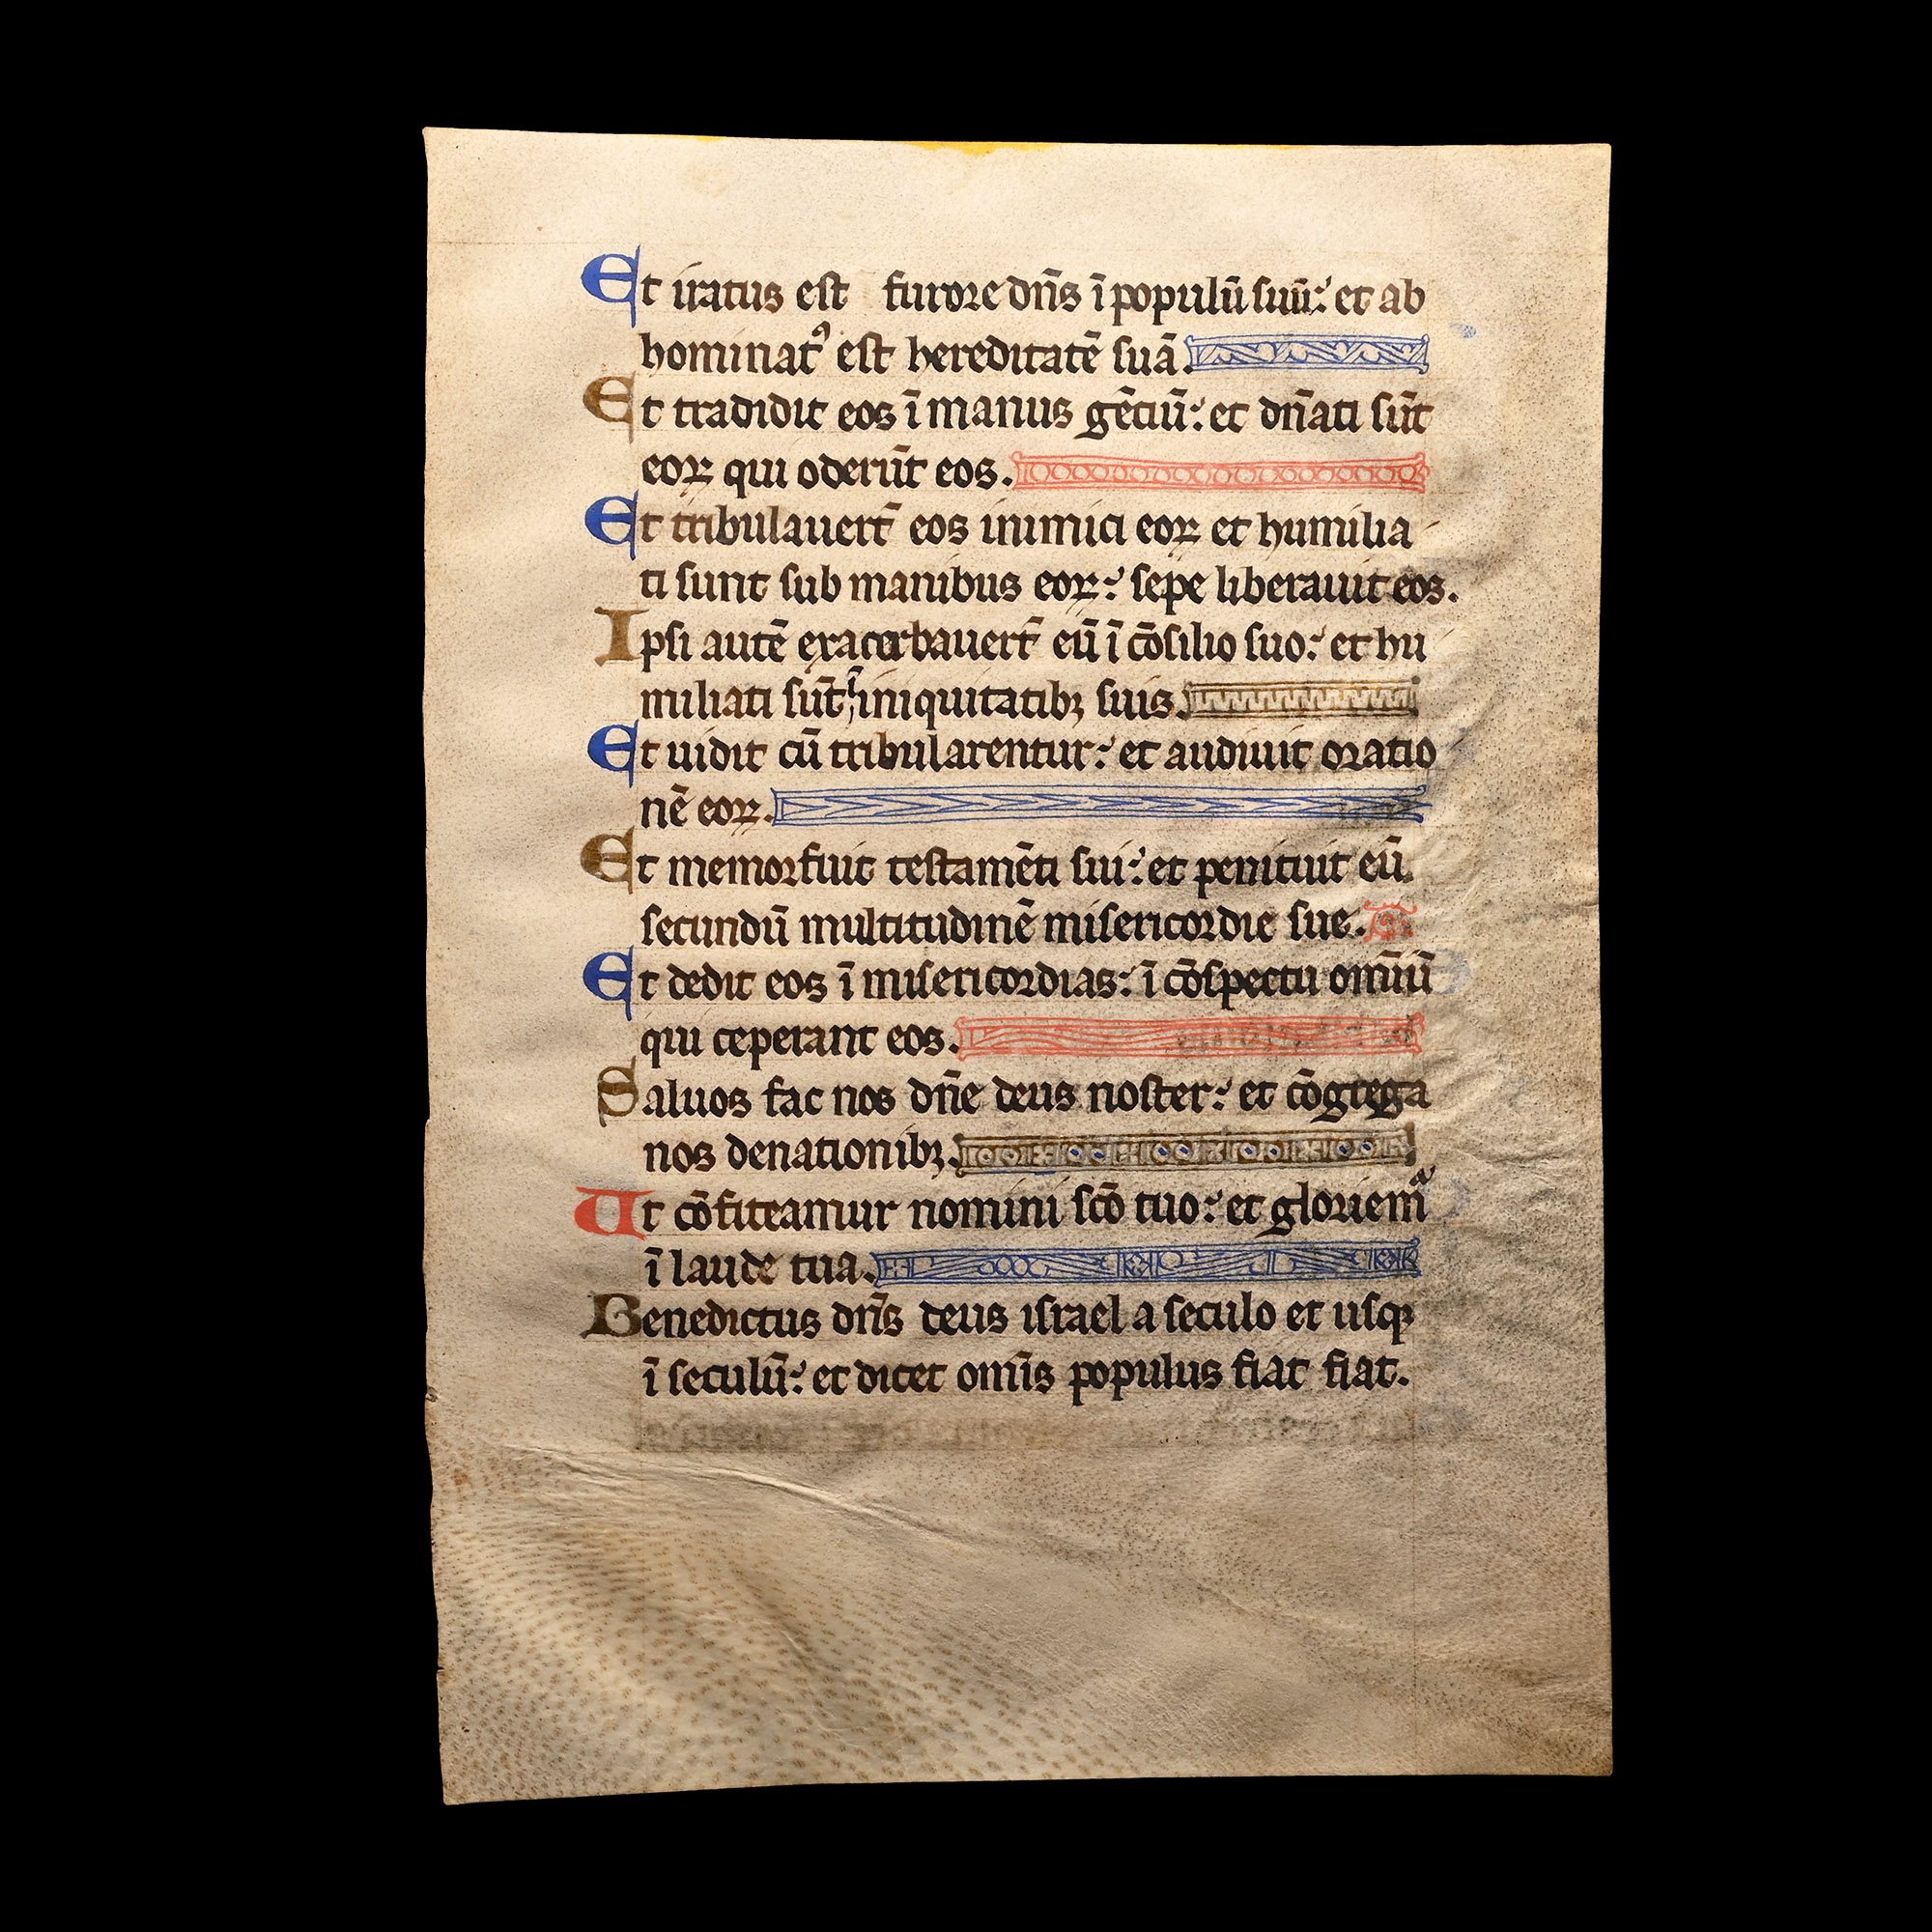 Et iratus est furore dn̄s ī populū suū: et ab
hominatꝰ est hereditatē suā.
Et tradidit eos ī manus gētiū: et dn̄ati sūt
eoꝝ qui oderūt eos.
Et tribulauert̄ eos inimici eoꝝ et humilia
ti sunt sub manibus eoꝝ: sepe liberauit eos.
Ipsi autē exacerbauert̄ eū ī cōsilio suo: et hu
miliati sūt iniquitatibꝫ suis.
Et uidit cū tribularentur: et audiuit oratio
nē eoꝝ.
Et memor fuit testamēti sui: et penituit eū
secundū multitudinē misericordie sue.
Et dedit eos ī misericordias: ī cōspectu omīū
qui ceperant eos.
Saluos fac nos dn̄e deus noster: et cōgrega
nos denationibꝫ.
Ut cōfiteamur nomini scō tuo: et gloriemᷓ
ī laude tua.
Benedictus dn̄s deus israel a seculo et usqꝫ
ī seculū: et dicet omīs populus fiat fiat.